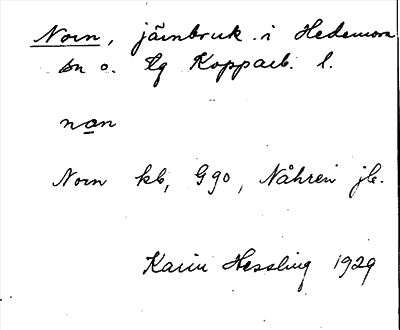 Norn, järnbruk i Hedemora
sn o. tg Kopparb. l.
non
Norn kb, G90, Nåhren jb.
Karin Hessling 1929